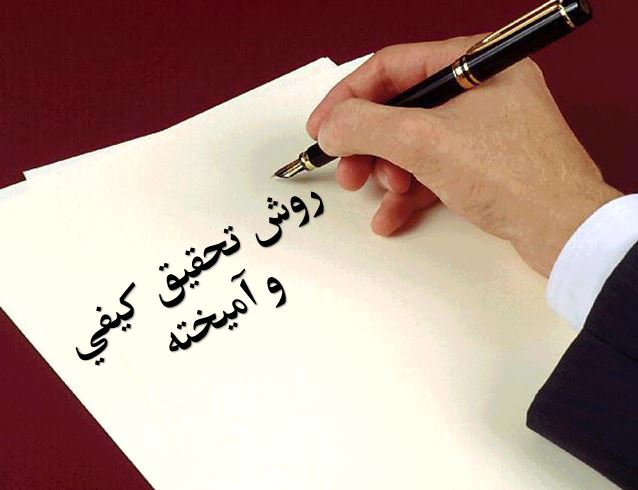 روش تحقيق كيفي
و آميخته